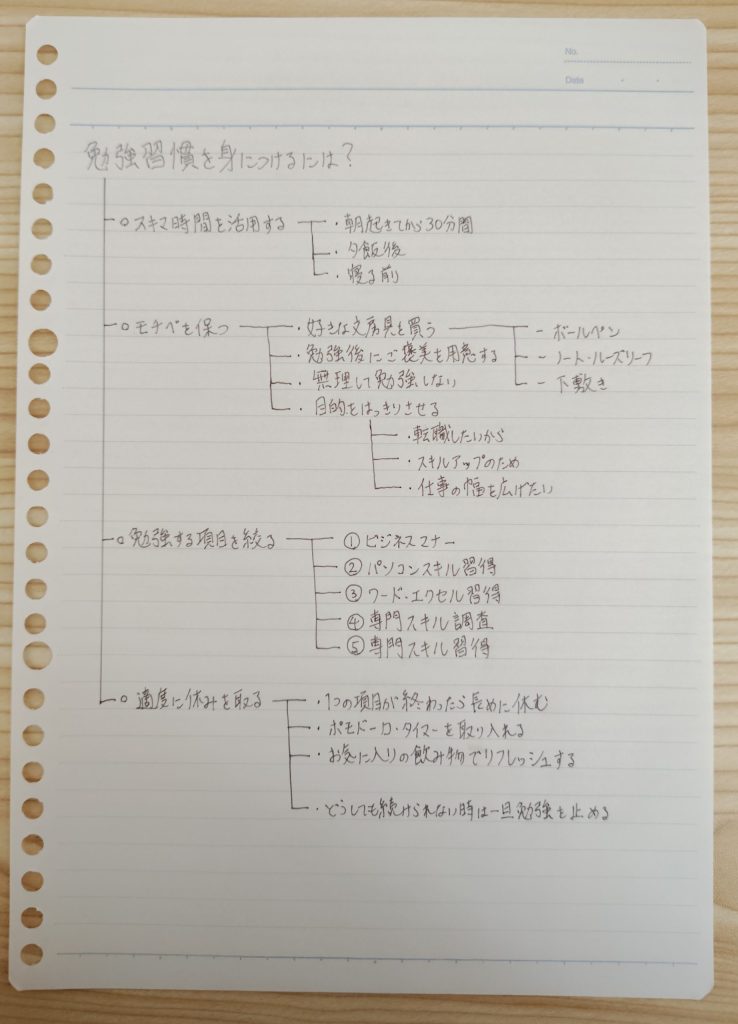 No.
Date
勉強習慣を身につけるには?
○スキマ時間を活用する ・朝起きてから30分間
・夕飯後
・寝る前
○モチベを保つ ・好きな文房具を買う - ボールペン
・勉強後にご褒美を用意する - ノート・ルーズリーフ
・無理して勉強しない - 下敷き
・目的をはっきりさせる
・転職したいから
・スキルアップのため
・仕事の幅を広げたい
○勉強する項目を絞る ①ビジネスマナー
②パソコンスキル習得
③ワード・エクセル習得
④専門スキル調査
⑤専門スキル習得
○適度に休みを取る ・1つの項目が終わったら長めに休む
・ポモドーロ・タイマーを取り入れる
・お気に入りの飲み物でリフレッシュする
・どうしても続けられない時は一旦勉強を止める